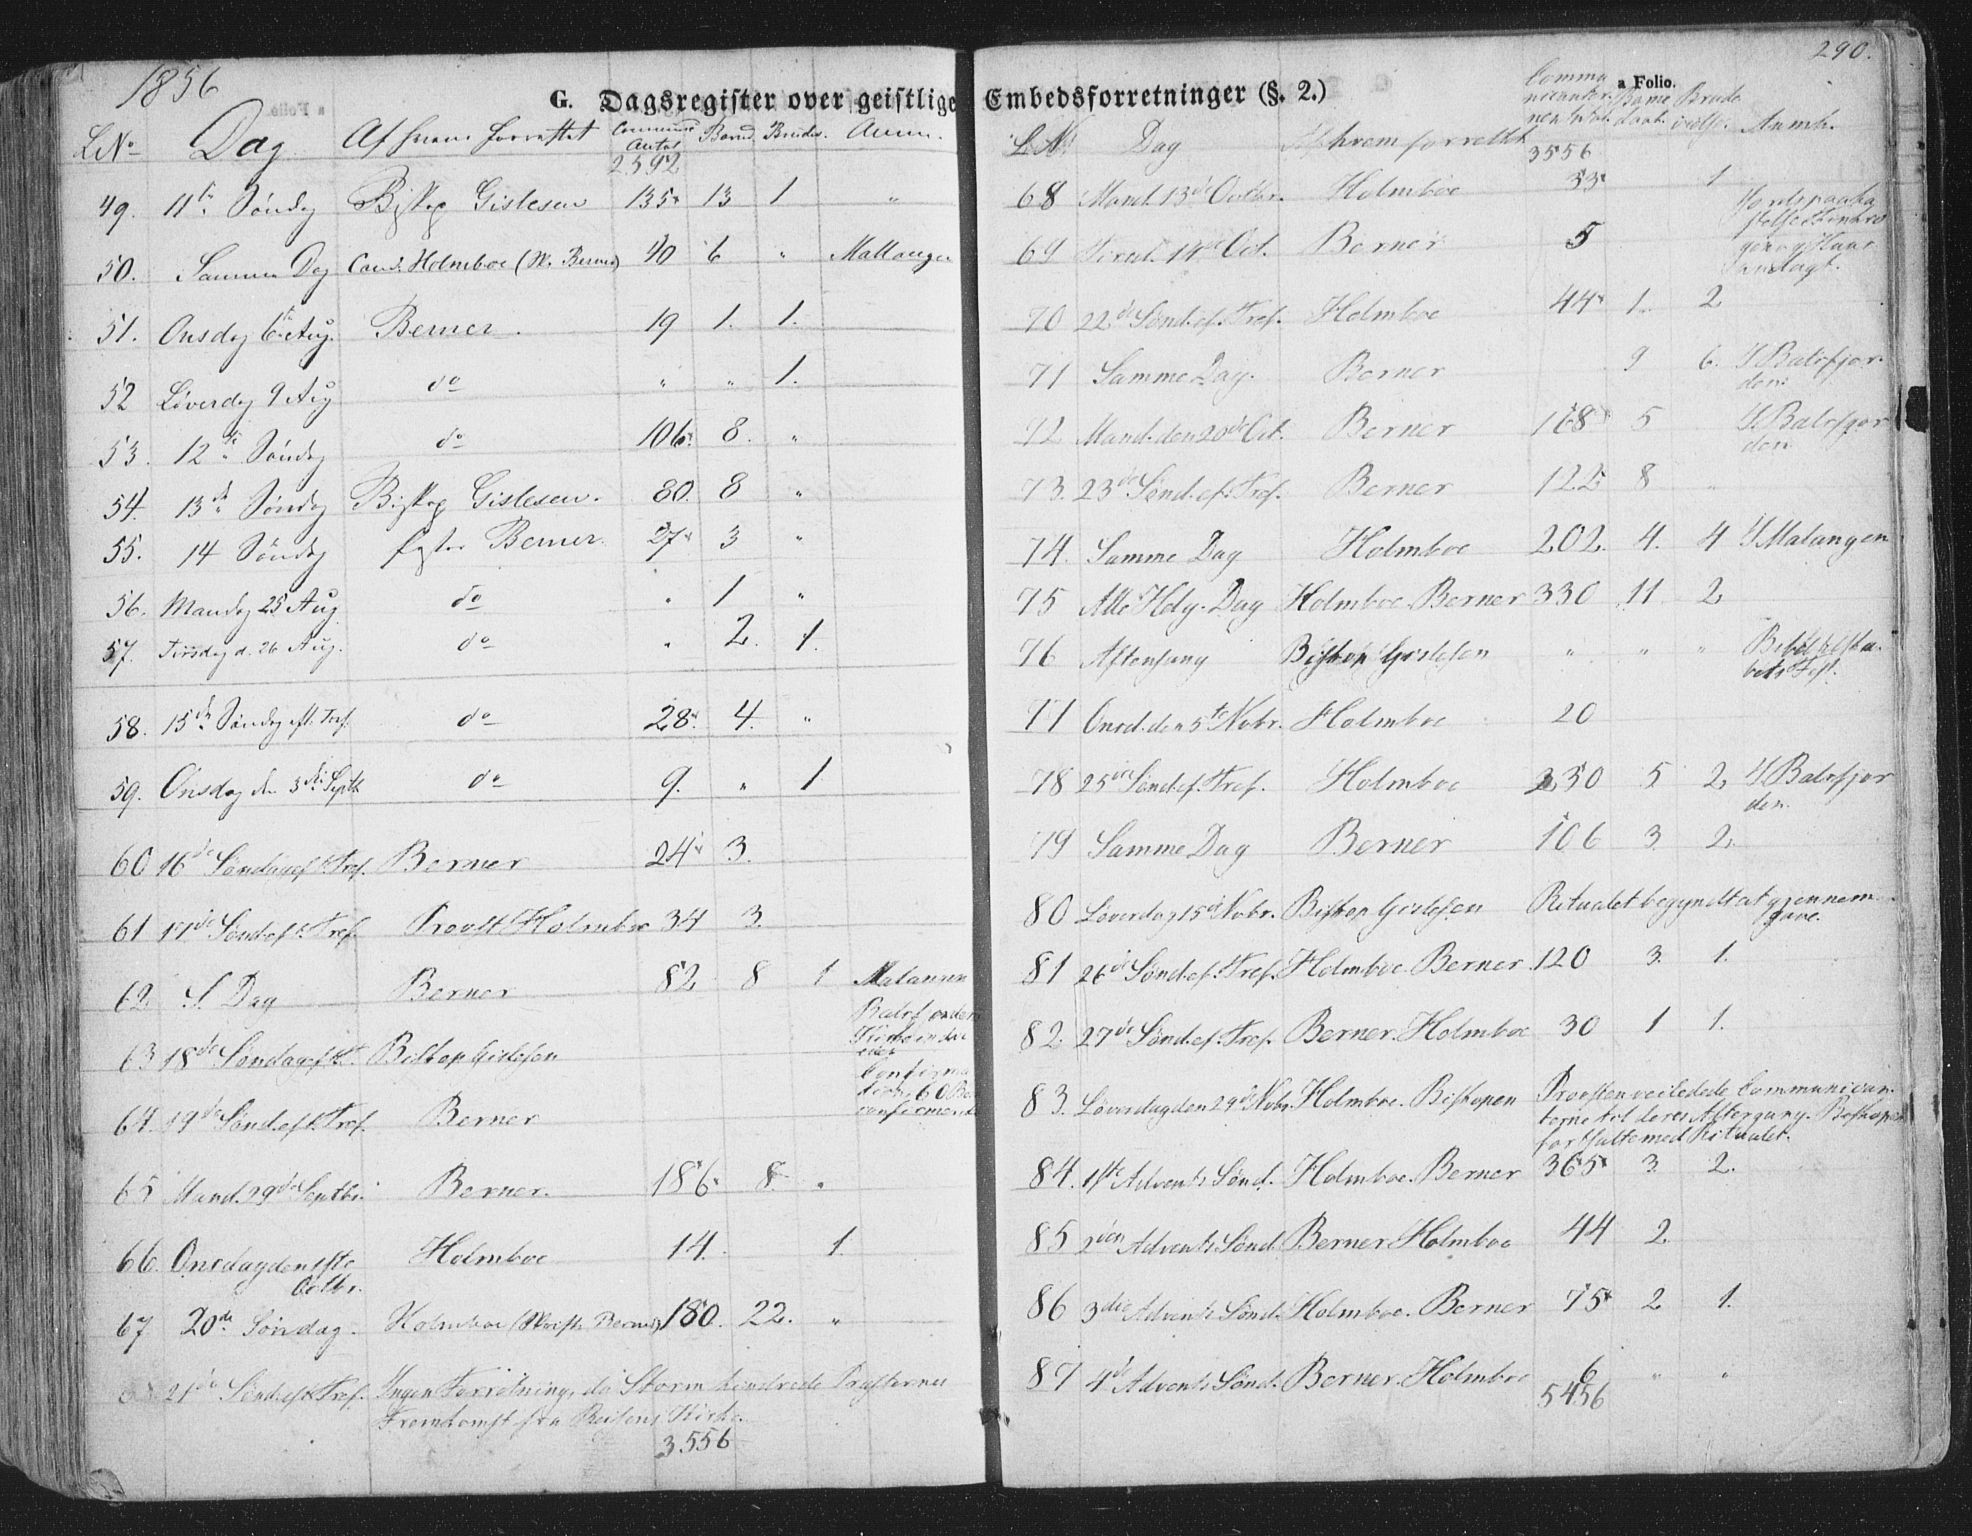 1856
G. Dagsregister over geistlige
L. No Dag Af hvem forrettet Communic Antal Børn Brudev. Anm.
2592
49. 11te Søndag Biskop Gislesen 135 13 1 "
50. Samme Dag Cand. Holmboe (Sk. Berner) 40 6 " Mallangen
51. Onsdag 6te Aug. Berner. 19 1. 1.
52 Løverdag 9 Aug do " " 1.
53. 12te Søndag do 106. 8. "
54. 13de Søndag Biskop Gislesen. 80. 8 "
55. 14 Søndag Pastor Berner. 27 3 "
56. Mandag 25 Aug do " 1 "
57. Tirsdag d. 26 Aug. do " 2. 1.
58. 15de Søndag eft. Tref. do 28. 4. "
59. Onsdag den 3die Septb do 9. " 1
60 16de Søndag ef. Tref. Berner 24 3.
61 17de Sønd. eft. Tref. Provst Holmboe 34 3.
62. S. Dag Berner 82 8 1 Malangen
63 18de Søndag eft. Biskop Gislesen
64. 19de Sønd. eft. Tref. Berner
65 Mand. 29de Septbr. Berner. 186 8. "
66. Onsdag den 1ste Octbr. Holmboe 14. 1.
67 20de Søndag. Holmboe (Skrift. Berner) 180. 22. "
21de Sønd. eft. Tref. Ingen Forretning, da Storm hindrede Præsternes
Fremkomst fra Reisens Kirke.
3556
290.
Embedsforretninger (§. 2.)
a Folio.
L. N. Dag Af hvem forrettet Communicanternes Antal. Børnedaab. Brudevielse. Anmk.
3556
68 Mand. 13de Octbr. Holmboe 33 1
69 Tirsd. 14de Oct. Berner 5
70 22de Sønd. ef. Tref. Holmboe 44 1. 2
71 Samme Dag. Berner 9 6. I Balsfjorden.
72 Mand. den 20de Oct. Berner 168 5 I Balsfjorden
73. 23de Sønd. ef. Tref. Berner 122 8 "
74. Samme Dag Holmboe 202. 4. 4 I Malangen
75 Alle Helg. Dag Holmboe. Berner 330 11 2
76 Aftensang Biskop Gislesen " " " Bibelselskabets Fest.
77 Onsd. den 5te Novbr. Holmboe 20
78 25de Sønd. ef. Tref. Holmboe 230 5 2 I Balsfjorden.
79 Samme Dag Berner 106 3 2
80 Løverdag 15de Novbr. Biskop Gislesen Ritualet begyndt at gjennemgaae.
81 26de Sønd. ef. Tref. Holmboe. Berner. 120 3. 1.
82. 27de Sønd. ef. Tref. Berner. Holmboe 30 1 1.
83. Løverdag den 29de Novbr. Holmboe. Biskopen Provsten veiledede Communicanterne til deres Altergang. Biskopen
fortsatte med Ritualet.
84. 1ste Advents Sønd. Holmboe. Berner 365 3. 2.
85 2den Advents Sønd. Berner. Holmboe 44 2.
86 3die Advents Sønd. Holmboe. Berner 75 2 1.
87 4de Advents Sønd. Berner. Holmboe 6 " "
5456